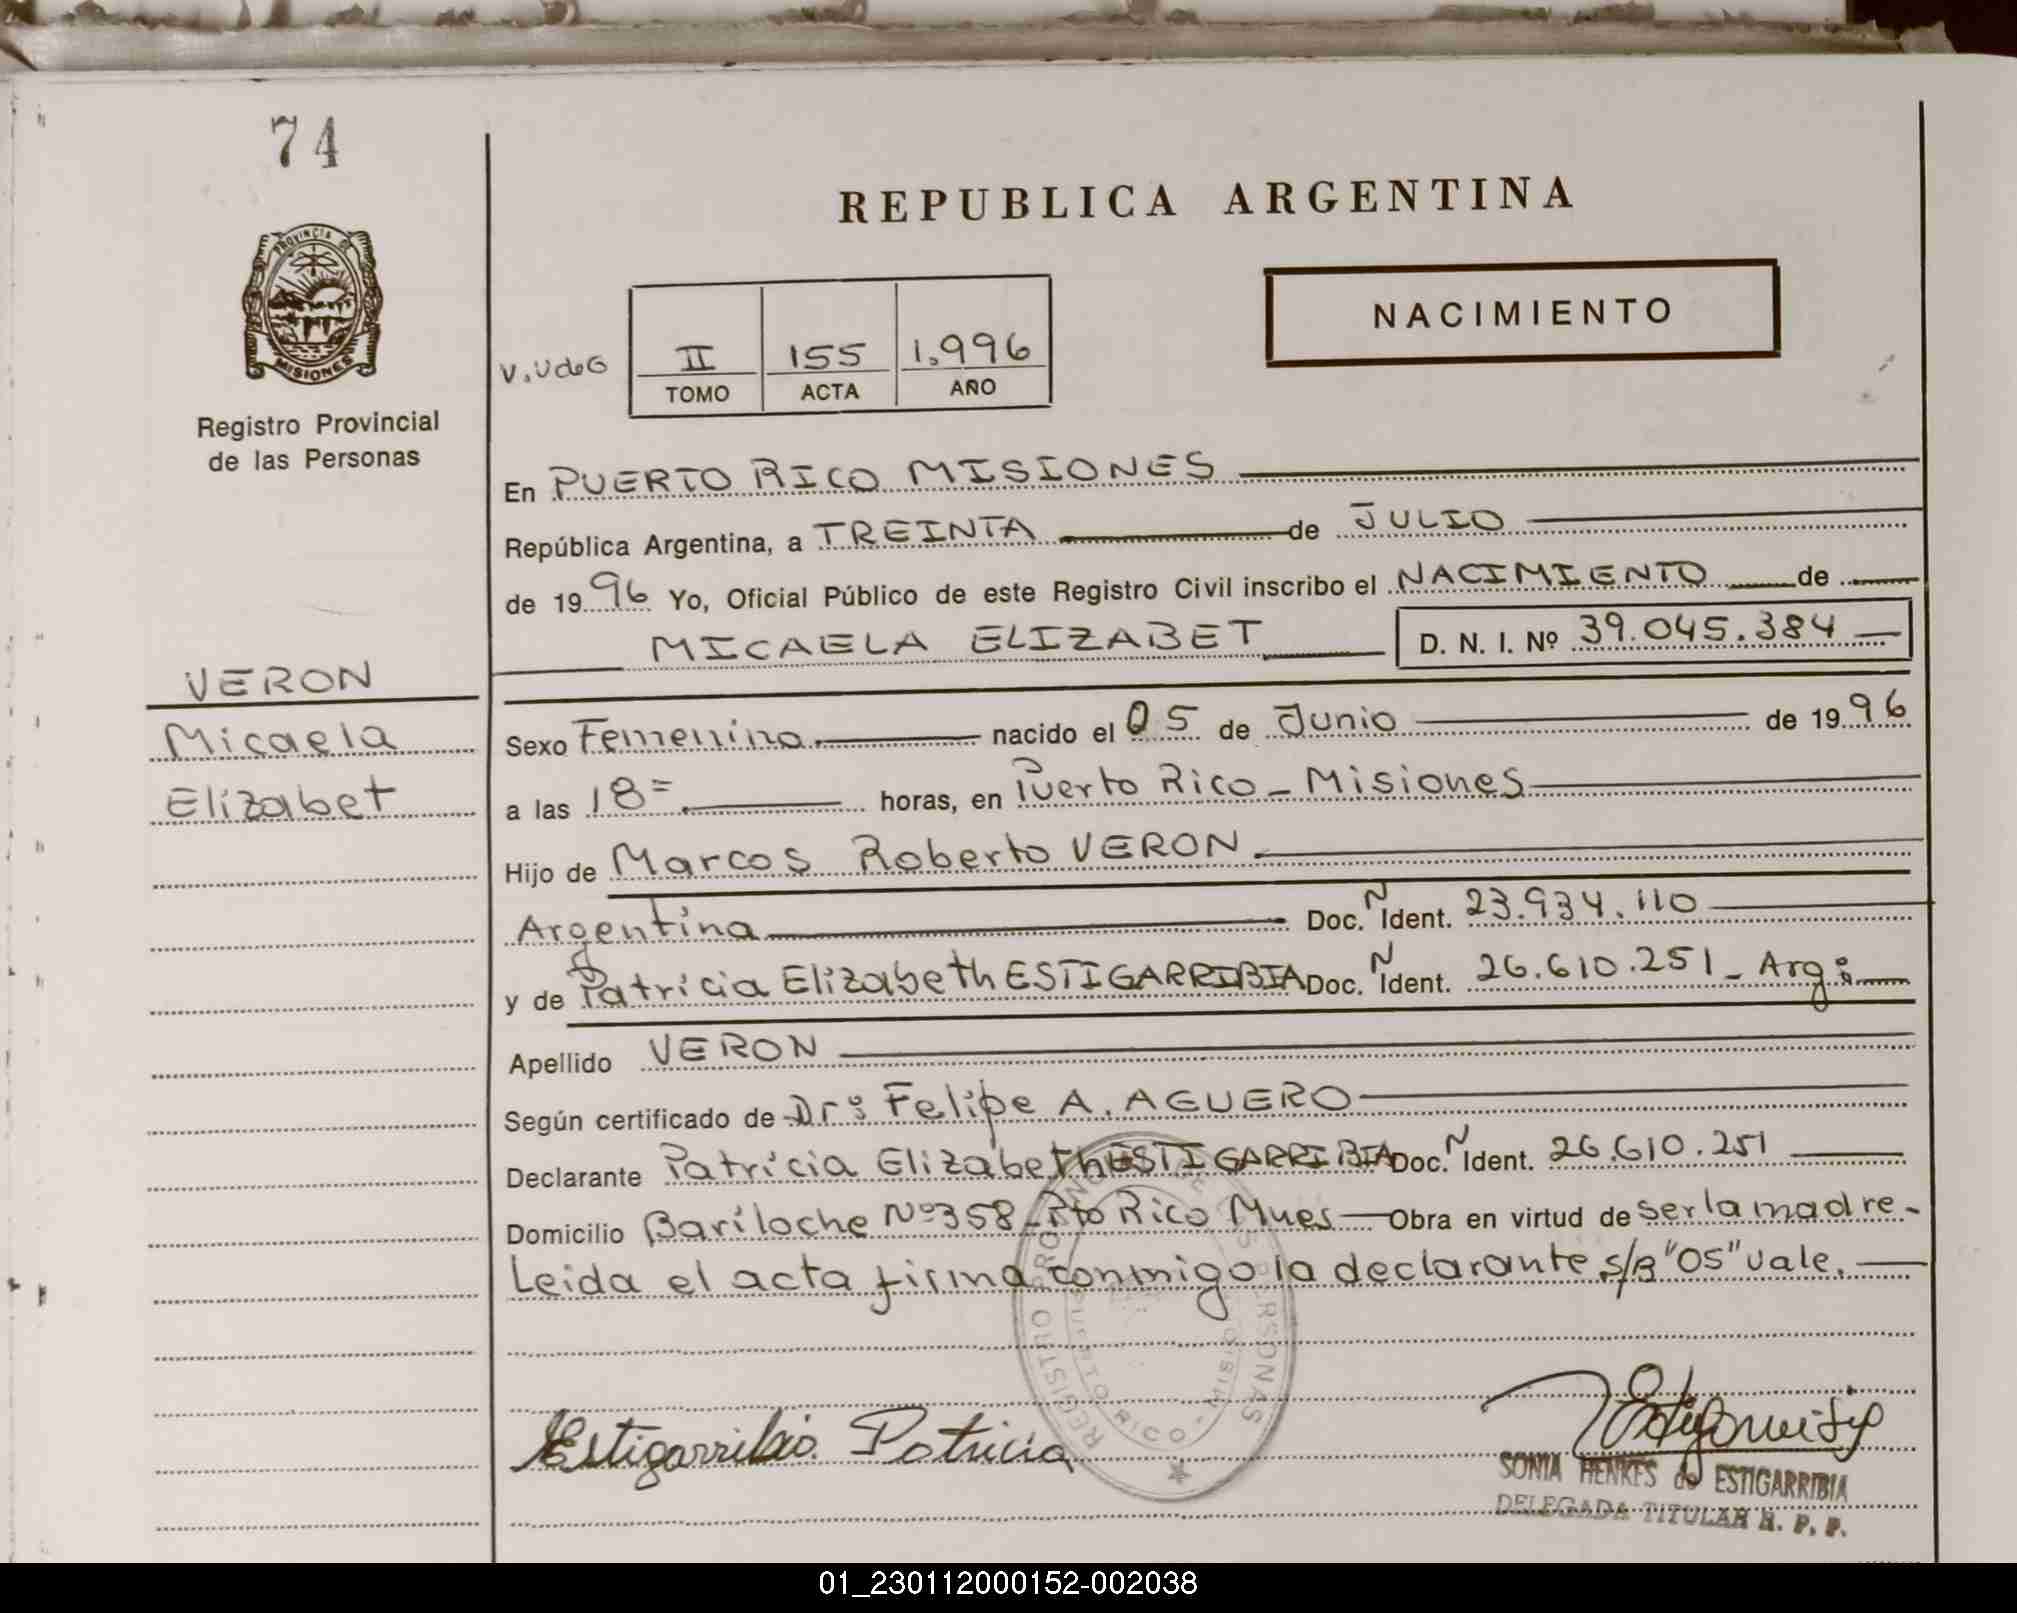 74
REPUBLICA ARGENTINA
PROVINCIA DE
MISIONES
Registro Provincial
de las Personas
NACIMIENTO
II 155 1.996
TOMO ACTA AÑO
En PUERTO RICO MISIONES
República Argentina, a TREINTA de JULIO
de 1996 Yo, Oficial Público de este Registro Civil inscribo el NACIMIENTO de
MICAELA ELIZABET D. N. I. Nº 39.045.384
VERON
Micaela
Elizabet
Sexo Femenino nacido el 05 de Junio de 1996
a las 18= horas, en Puerto Rico - Misiones
Hijo de Marcos Roberto VERON
Argentina Doc. N Ident. 23.934.110
y de Patricia Elizabeth ESTIGARRIBIA Doc. N Ident. 26.610.251 - Arg:
Apellido VERON
Según certificado de Dr: Felipe A. AGUERO
Declarante Patricia Elizabeth ESTIGARRIBIA Doc. N Ident. 26.610.251
Domicilio Bariloche Nº 358 - Pto Rico Mnes Obra en virtud de ser la madre -
Leida el acta firma conmigo la declarante s/R "05" vale.
REGISTRO PERSONAS
PUERTO RICO - MISIONES
Estigarribia Patricia
SONIA HENKES de ESTIGARRIBIA
DELEGADA TITULAR R. P. P.
01_230112000152-002038